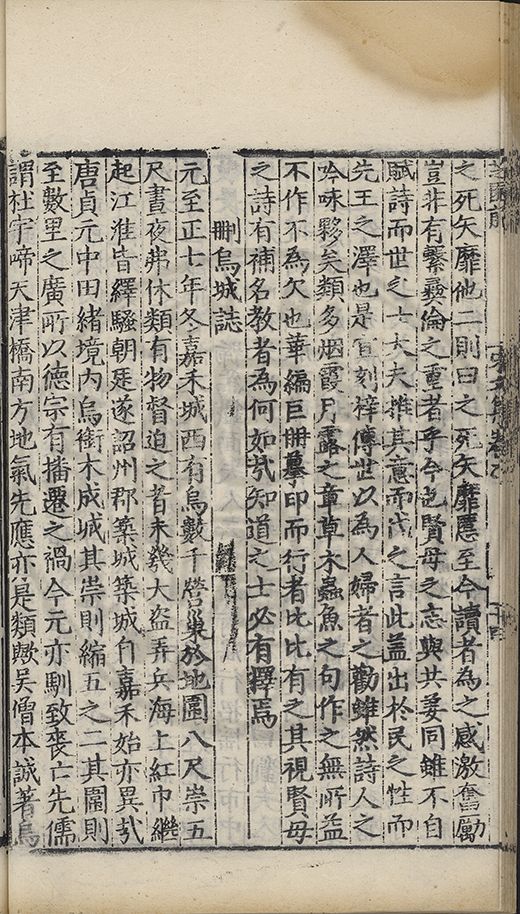 之死矢靡他二則曰之死矢靡慝至今讀者為之感激奮勵
豈非有繫彞倫之重者乎今包賢母之志與共姜同雖不自
賦詩而世之士大夫推其意而代之言此葢出於民之性而
先王之澤也是宜刻梓傳世以為人婦者之勸雖然詩人之
吟咏夥矣類多烟霞月露之章草木蟲魚之句作之無所益
不作不為欠也華編巨冊摹印而行者比比有之其視賢母
之詩有補名教者為何如㢤知道之士必有擇焉
刪烏城誌
元至正七年冬嘉禾城西有烏數千營巢於地圍八尺崇五
尺晝夜弗休類有物督迫之者未幾大盜弄兵海上紅巾繼
起江淮皆繹騷朝廷遂詔州郡築城築城自嘉禾始亦異㢤
唐貞元中田緒境內烏銜木成城其崇則縮五之二其圍則
至數里之廣所以德宗有播遷之禍今元亦馴致喪亡先儒
謂杜宇啼天津橋南方地氣先應亦是類歟吳僧本誠著烏